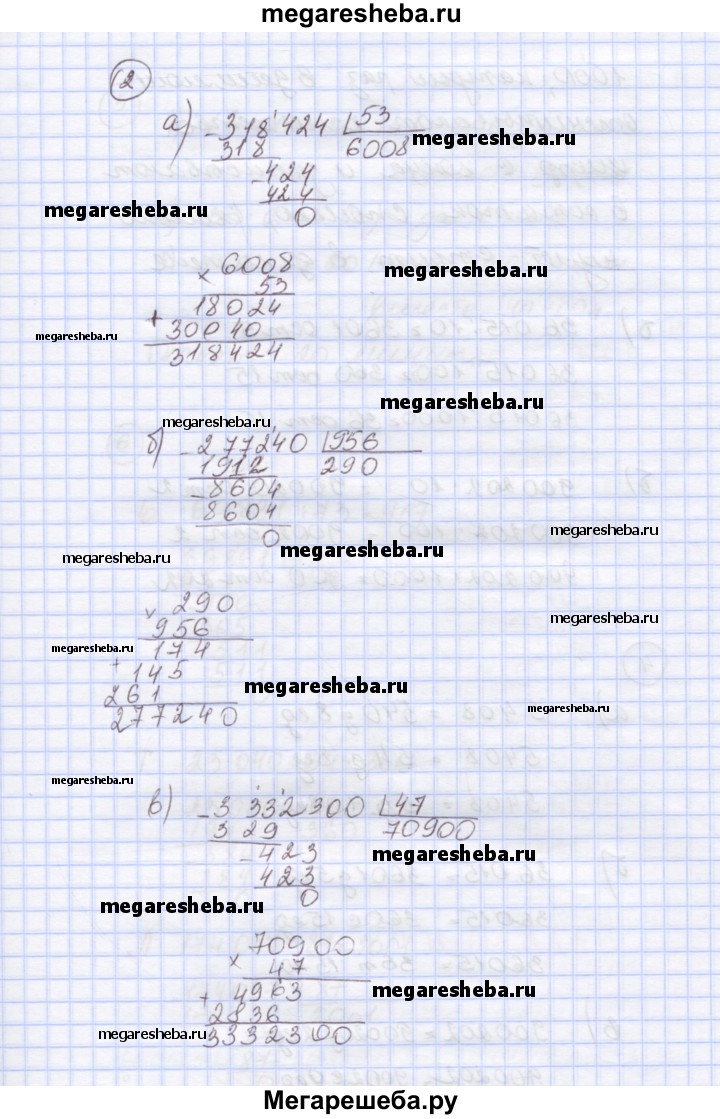 megaresheba.ru
2
а) - 318'424 | 53
318 6008
megaresheba.ru
- 424
424
megaresheba.ru
0
× 6008
megaresheba.ru
53
18024
+ 30040
megaresheba.ru
318424
megaresheba.ru
megaresheba.ru
б) - 277240 | 956
1912 290
- 8604
8604
megaresheba.ru
0
megaresheba.ru
megaresheba.ru
× 290
956
megaresheba.ru
174
megaresheba.ru
+ 145
261
megaresheba.ru
277240
megaresheba.ru
megaresheba.ru
в) - 3332300 | 47
329 70900
- 423
megaresheba.ru
423
0
megaresheba.ru
70900
× 47
+ 4963
megaresheba.ru
2836
megaresheba.ru
3332300
megaresheba.ru
Мегарешеба.ру